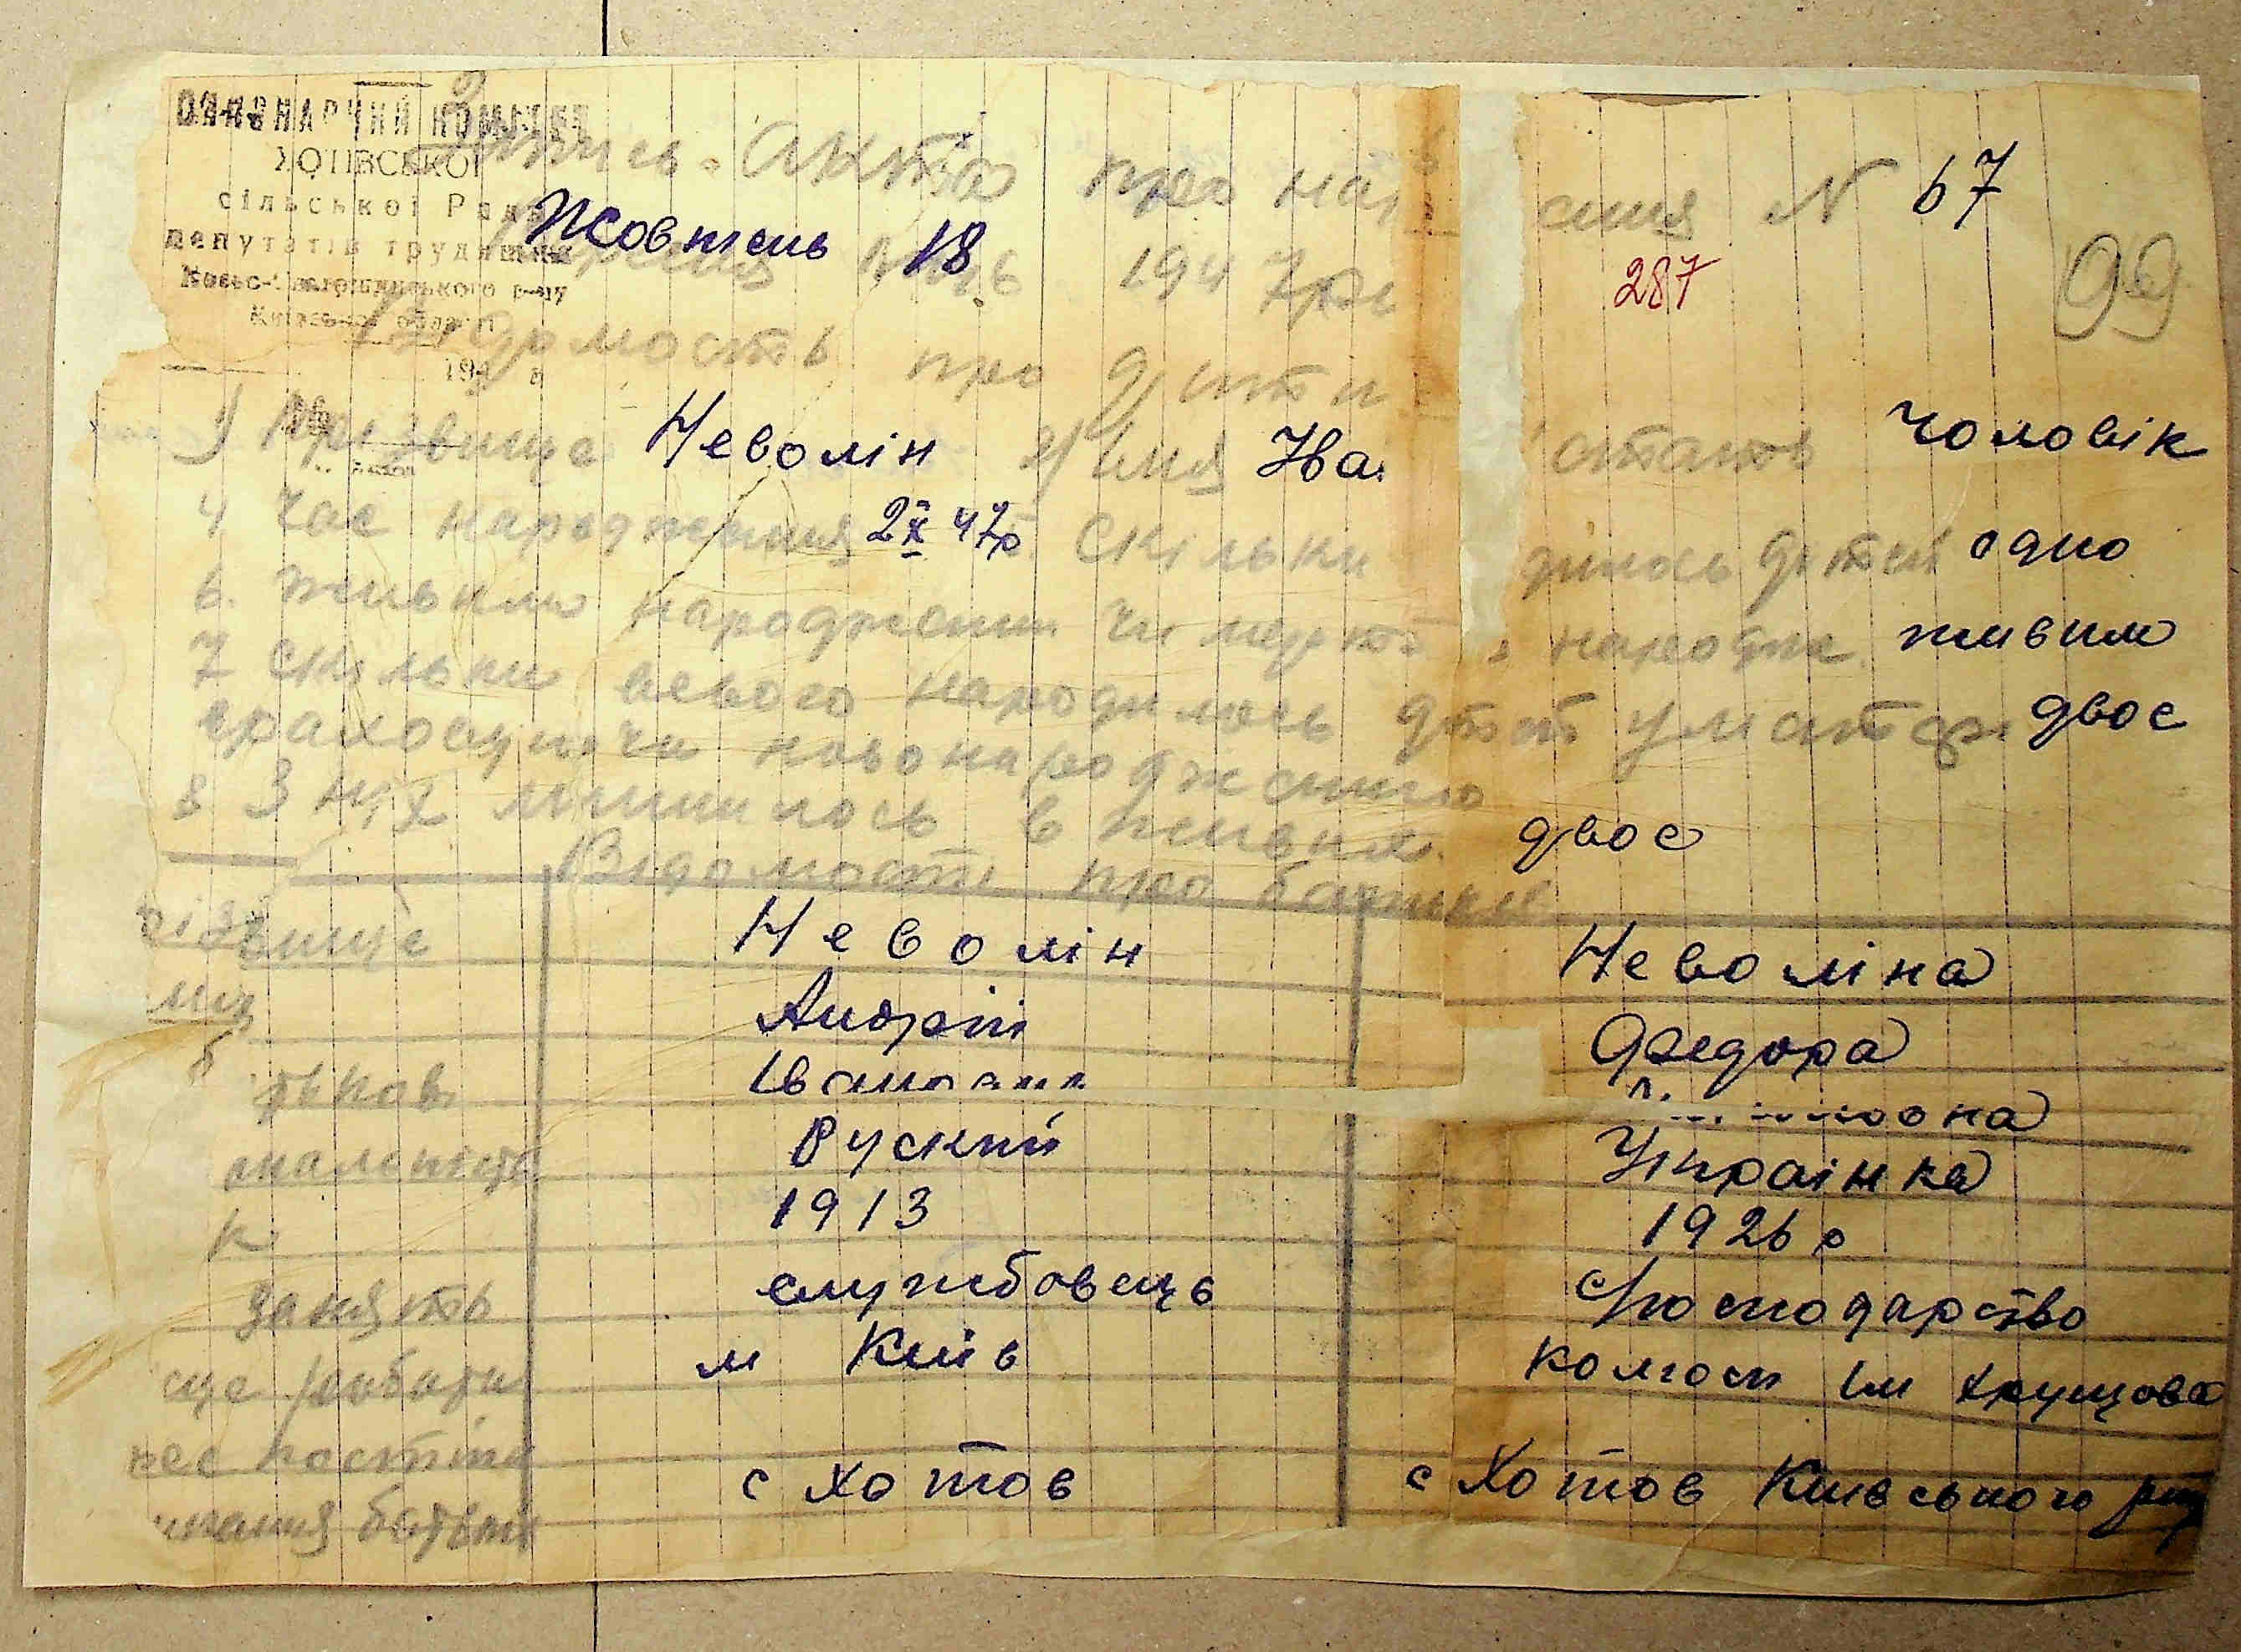 ВИКОНАРЧИЙ КОМІТЕТ
ХОТІВСЬКОЇ
сільської Ради
депутатів трудящих
Києво-Святошинського р-ну
Київської області
194 р
Запис акта про на ення N 67
Жовтень 18 1947р
287 99
Відомость про дити
1) Прізвище Неволін 2) Імя Іва стать чоловік
4 Час народження 2 X 47р 5 Скільки дилось дітей одно
6. Живим народжени чи мертв народж. живим
7 Скільки всього народилось дітей у матері двоє
враховуючи новонародженого
8 З них лишилось в живих двоє
Відомості про батьків
різвище Неволін Неволіна
мя Андрій Федора
б тькові Іванович
она
нальність Руский Українка
к 1913 1926 р
занять службовець господарство
сце роботи м Київ колгосп ім Хрущова
рес постійн
с Хотов с Хотов Київського рну
жання батьків